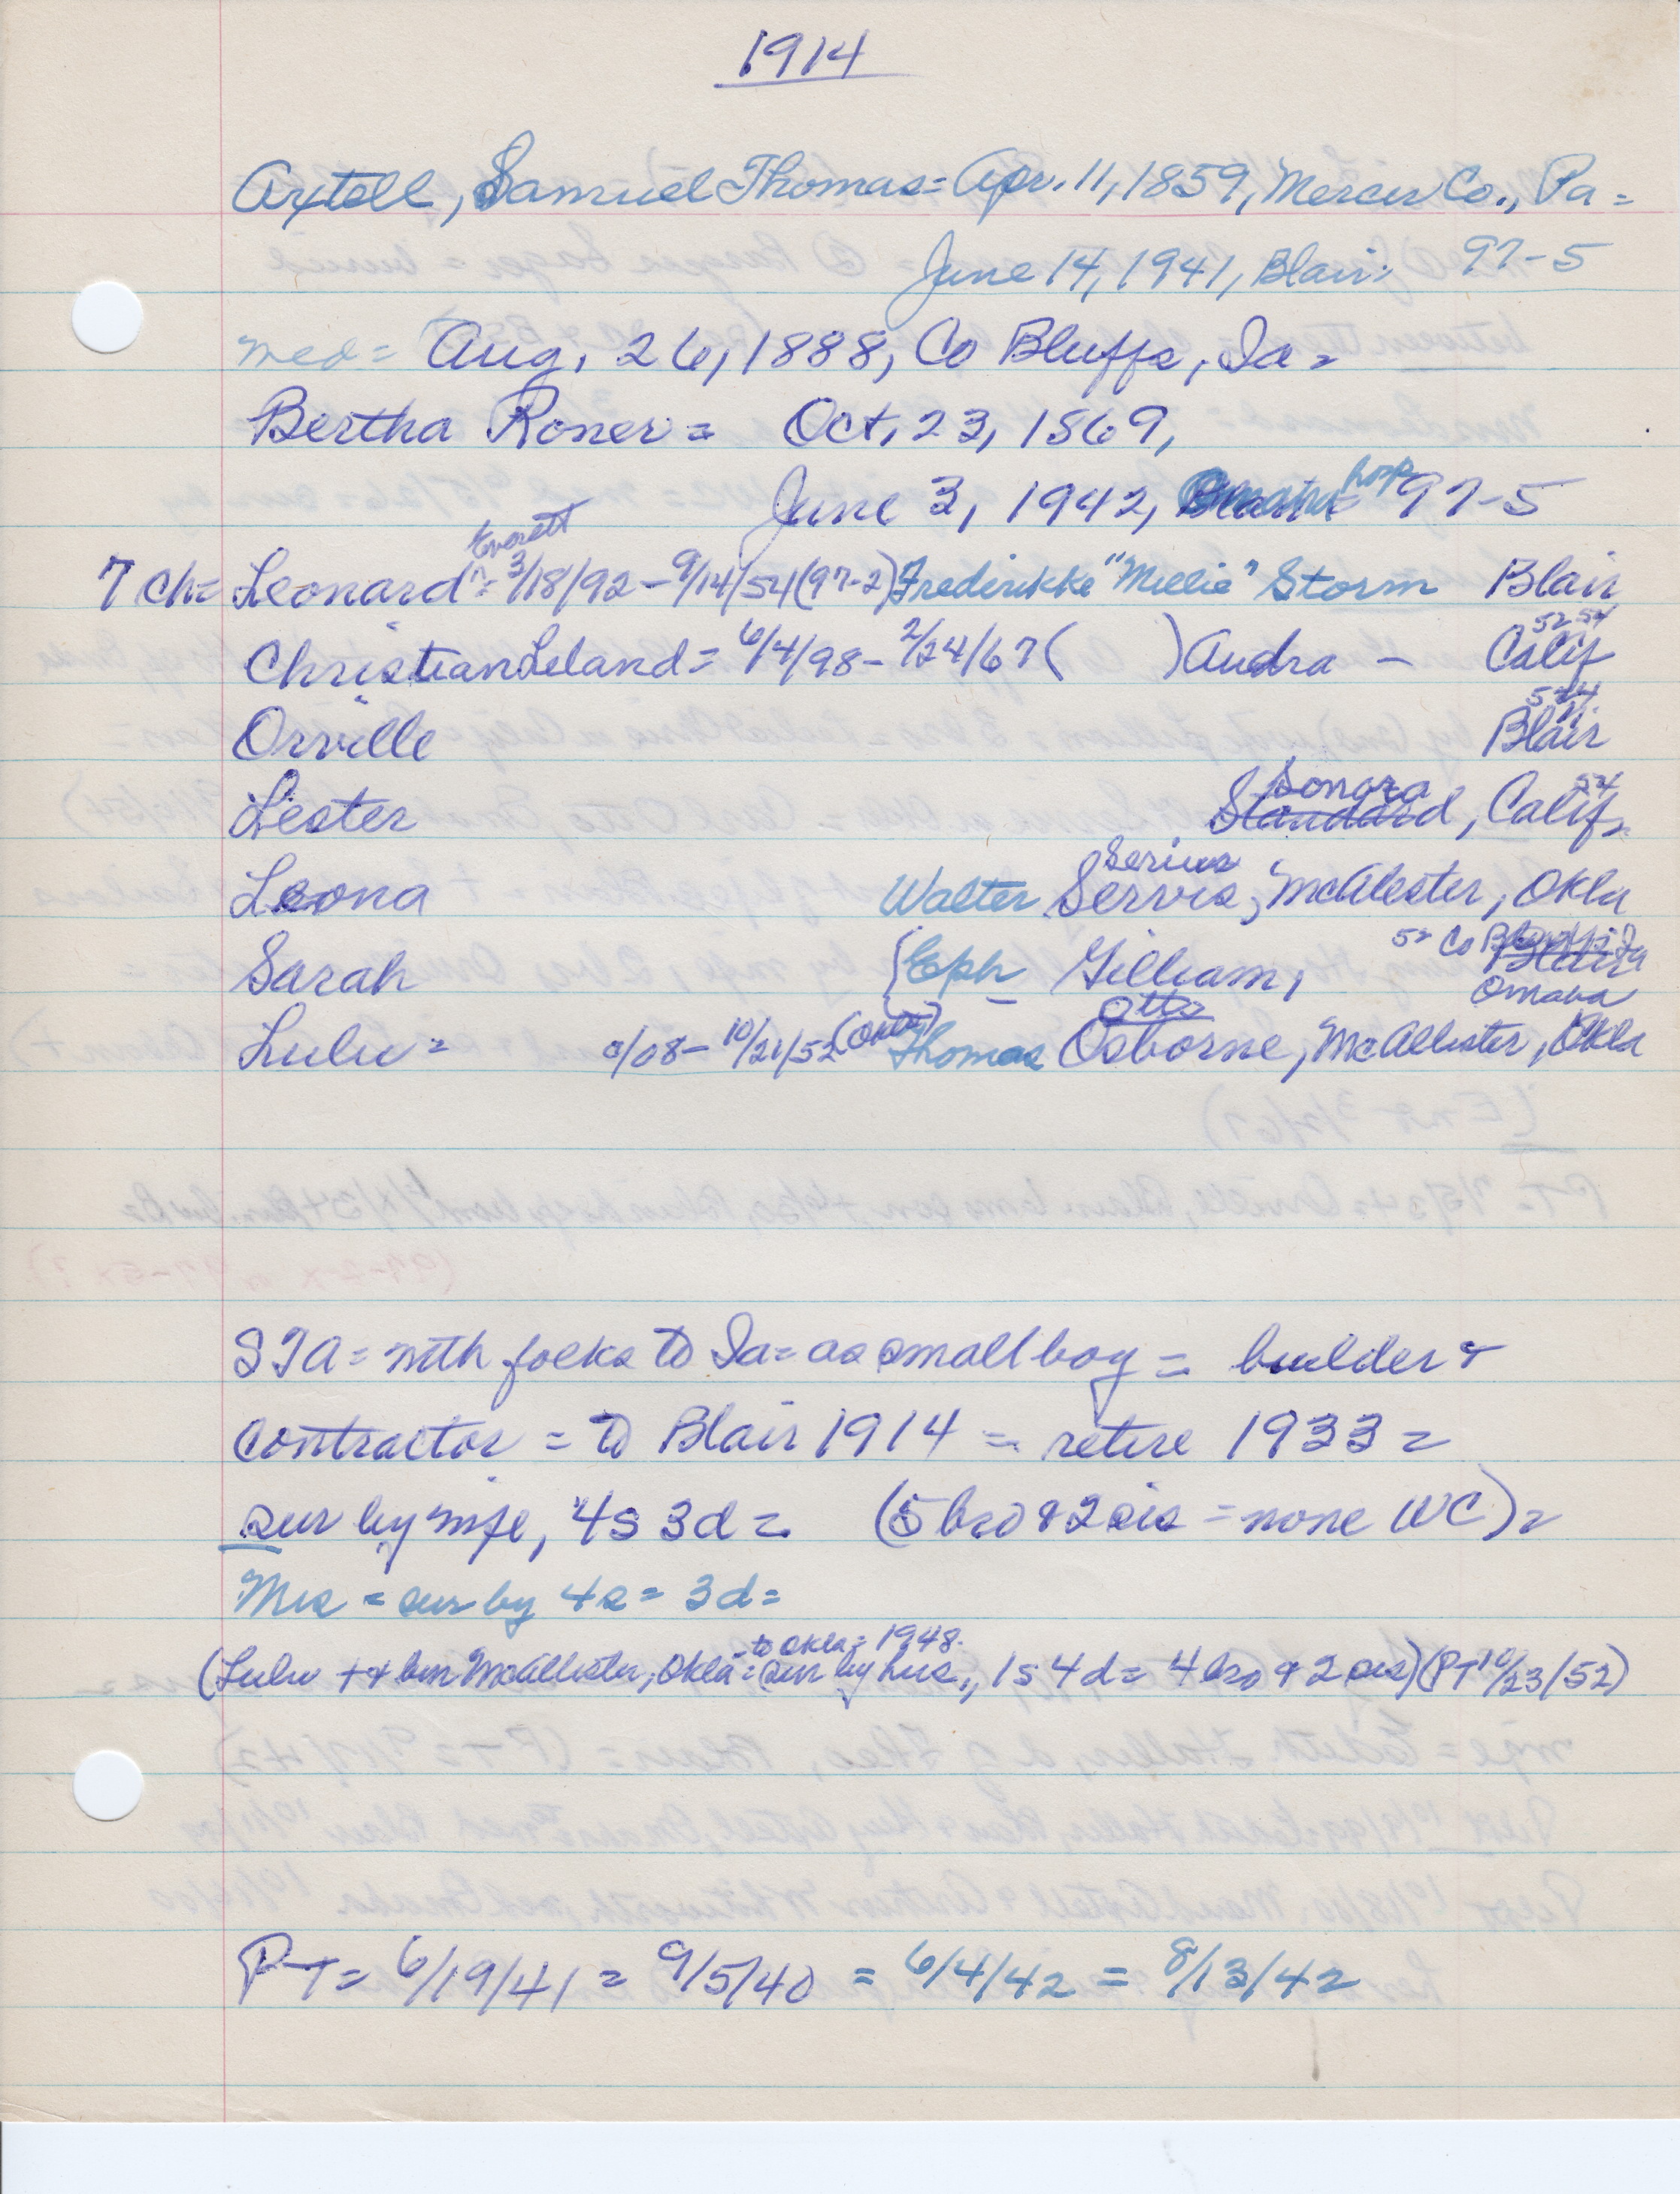 1914
Axtell, Samuel Thomas = Apr. 11, 1859, Mercer Co., Pa =
June 14, 1941, Blair = 97-5
med = Aug. 26, 1888, Co Bluffs, Ia =
Bertha Roner = Oct. 23, 1869,
June 3, 1942, Omaha hosp 97-5
Everett
7 ch = Leonard = 3/18/92 - 9/14/54 (97-2) Frederikke "Millie" Storm Blair
52 54
Christian Leland = 6/4/98 - 2/24/67 ( ) Audra - Calif
Orville Blair
Sonora 54
Lester Standard, Calif,
Serius
Leona Walter Servis, McAlester, Okla
52 Co Bluffs Ia
Sarah {Eph Gilliam, Blair
Omaha
Otto
Lulu = 0/08 - 10/21/52 (Okla) Thomas Osborne, McAllister, Okla
STA = with folks to Ia = as small boy = builder &
contractor = to Blair 1914 = retire 1933 =
sur by wife, 4s 3d = (5 bro & 2 sis = none WC) =
Mrs = sur by 4s = 3d =
to Okla = 1948.
(Lulu + & bur McAllister, Okla = sur by hus, 1s 4d = 4 bro & 2 sis) (PT 10/23/52)
PT = 6/19/41 = 9/5/40 = 6/4/42 = 8/13/42